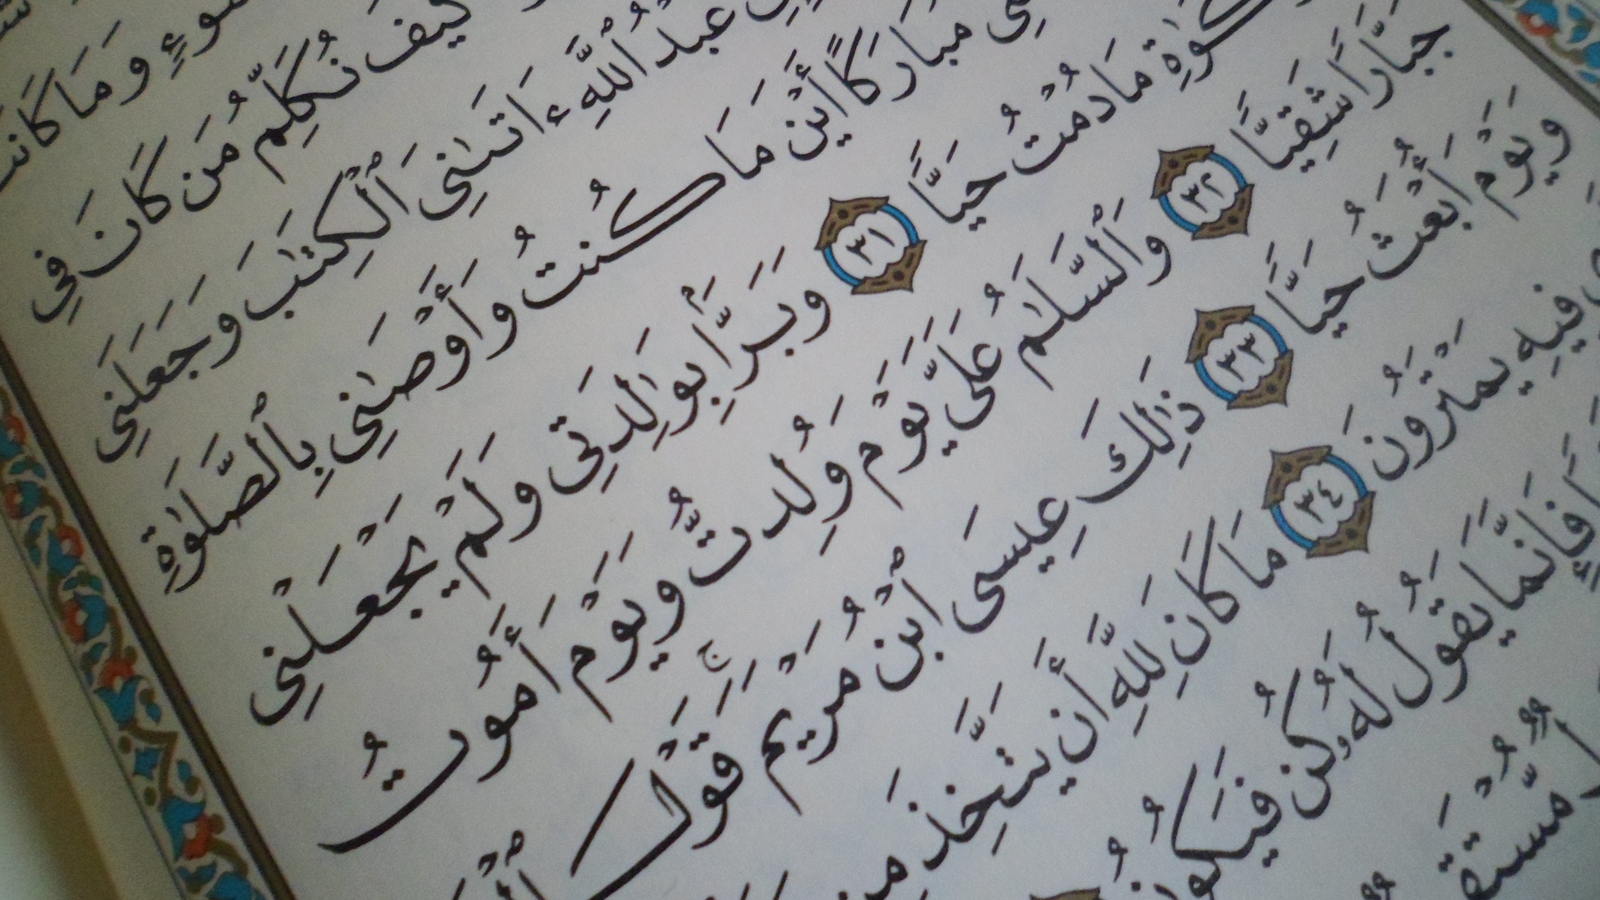 سَوْءٍ وَمَا كَانَتْ
كَيْفَ نُكَلِّمُ مَن كَانَ فِي
عَبْدُ ٱللَّهِ ءَاتَىٰنِيَ ٱلْكِتَٰبَ وَجَعَلَنِي
مُبَارَكًا أَيْنَ مَا كُنتُ وَأَوْصَٰنِي بِٱلصَّلَوٰةِ
مَا دُمْتُ حَيًّا ٣١ وَبَرًّۢا بِوَٰلِدَتِي وَلَمْ يَجْعَلْنِي
جَبَّارًا شَقِيًّا ٣٢ وَٱلسَّلَٰمُ عَلَيَّ يَوْمَ وُلِدتُّ وَيَوْمَ أَمُوتُ
وَيَوْمَ أُبْعَثُ حَيًّا ٣٣ ذَٰلِكَ عِيسَى ٱبْنُ مَرْيَمَ ۚ قَوْلَ
فِيهِ يَمْتَرُونَ ٣٤ مَا كَانَ لِلَّهِ أَن يَتَّخِذَ مِن
فَإِنَّمَا يَقُولُ لَهُۥ كُن فَيَكُونُ